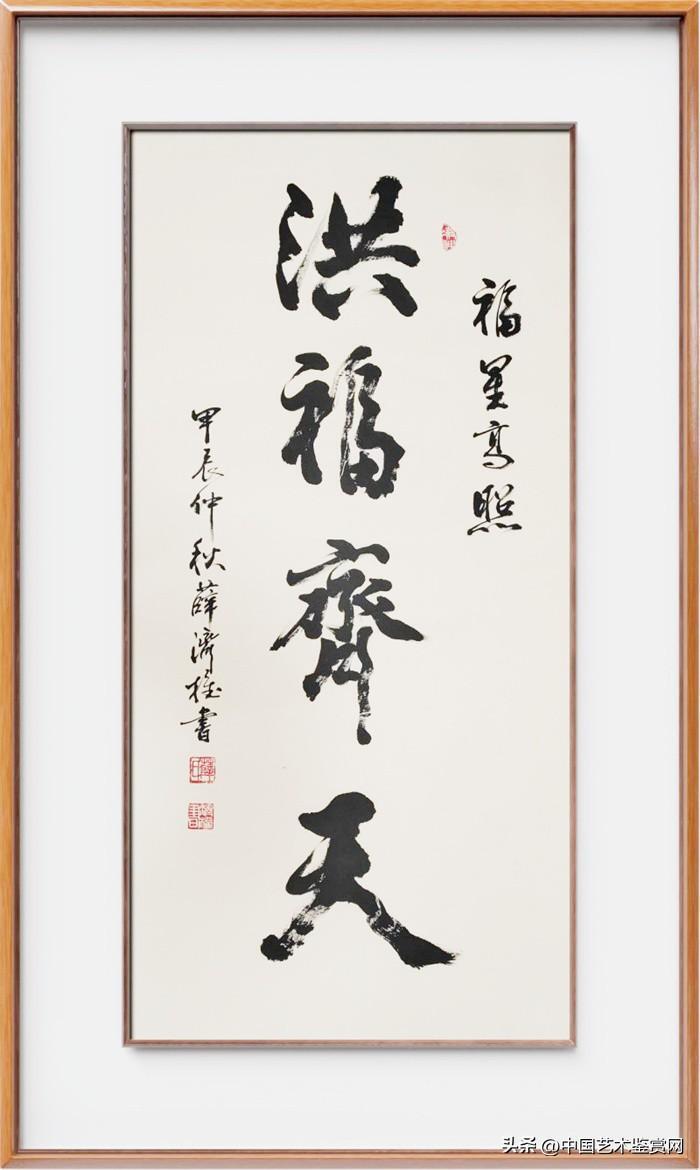 福星高照
洪福齊天
甲辰仲秋薛濟書
头条 @中国艺术鉴赏网